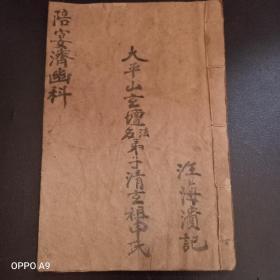 陪宴濟幽科
大平山玄壇
法名
弟子清玄祖甲氏
汪海濱記
OPPO A9